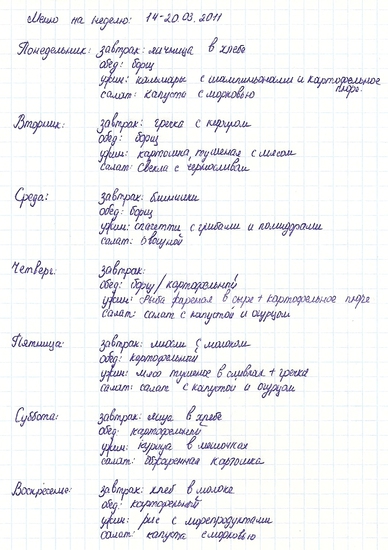 Меню на неделю: 14-20.03.2011
Понедельник: завтрак: яичница в хлебе
обед: борщ
ужин: кальмары с шампиньонами и картофельное пюре
салат: капуста с морковью
Вторник: завтрак: гречка с
обед: борщ
ужин: картошка, тушеная с мясом
салат: свекла с черносливом
Среда: завтрак: блинчики
обед: борщ
ужин: спагетти с грибами и помидорами
салат: овощной
Четверг: завтрак:
обед: борщ/картофельный
ужин: рыба жареная в сыре + картофельное пюре
салат: салат с капустой и огурцом
Пятница: завтрак: мюсли с молоком
обед: картофельный
ужин: мясо тушеное в сливках + гречка
салат: салат с капустой и огурцом
Суббота: завтрак: яйца в хлебе
обед: картофельный
ужин: курица в мешочках
салат: обжаренная картошка
Воскресенье: завтрак: хлеб в молоке
обед: картофельный
ужин: рис с морепродуктами
салат: капуста с морковью